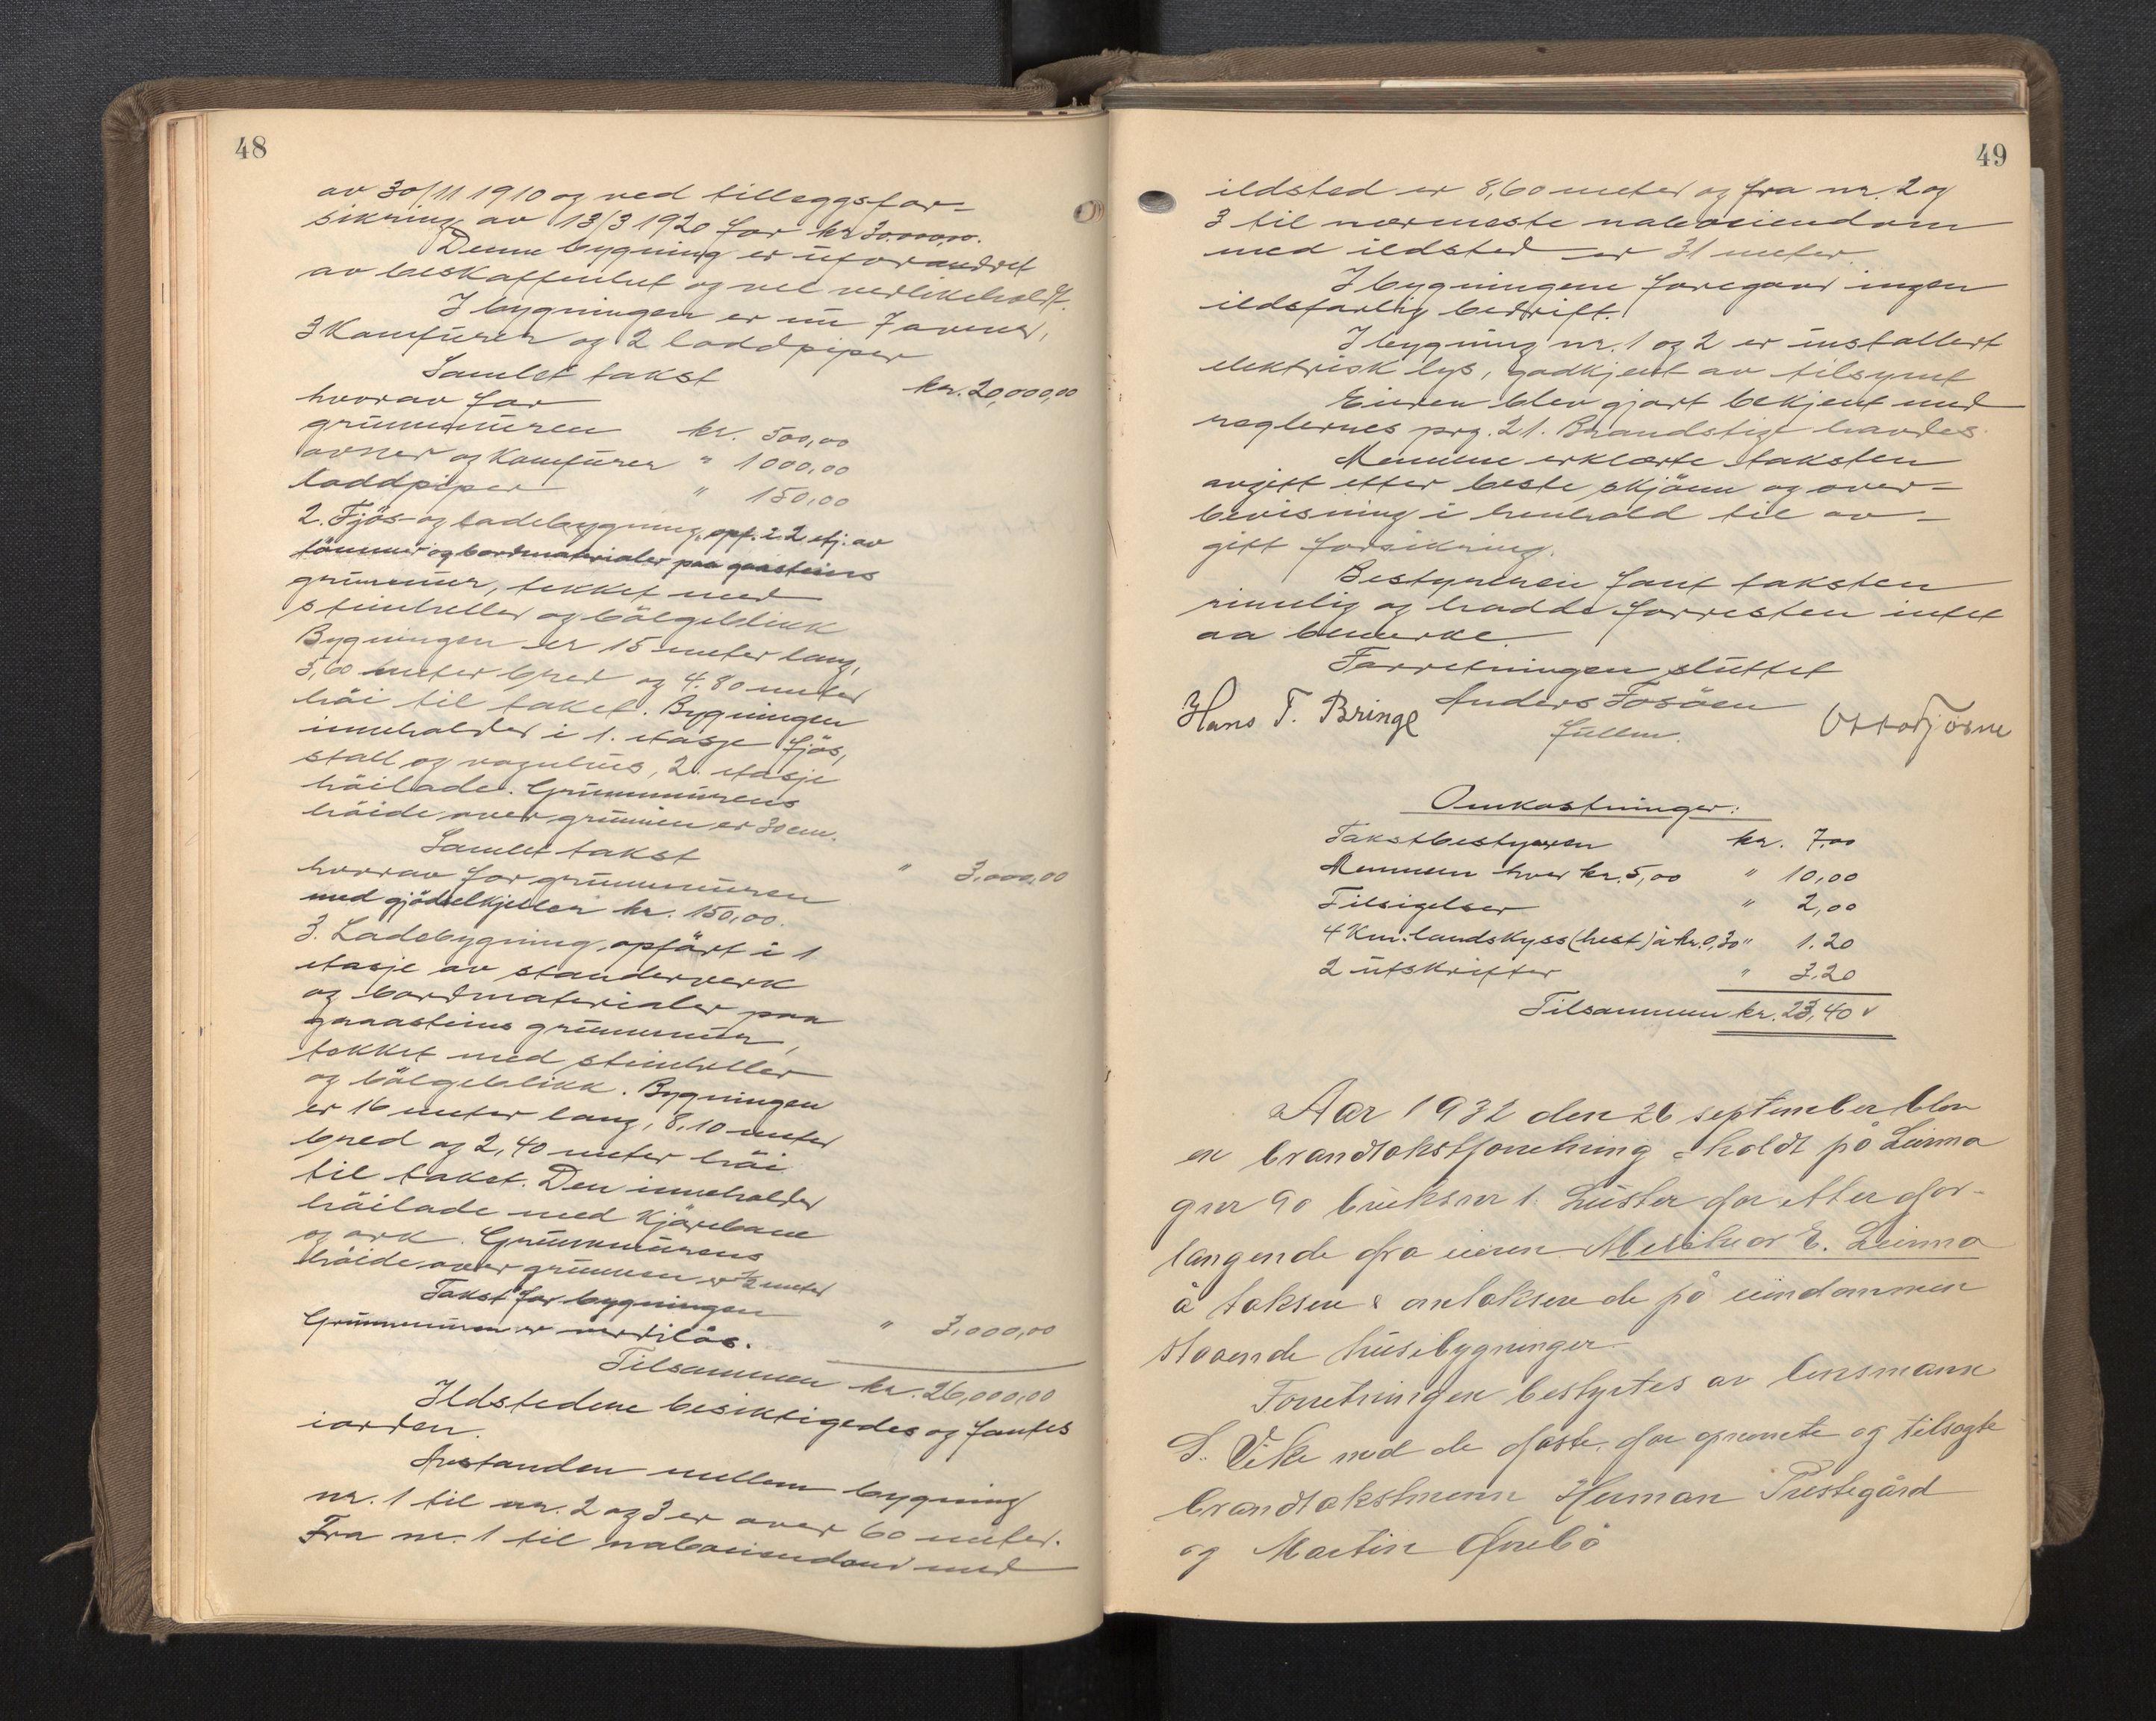 48
av 30/11 1910 og ved tilleggsfor-
sikring av 13/3 1920 for kr 30.000,00.
Denne bygning er uforandret
av beskaffenhet og vel vedlikeholdt.
I bygningen er nu 7 ovner,
3 Komfürer og 2 loddpiper
Samlet takst kr. 20,000,00
hvorav for
grunnmüren kr. 500,00
ovner og Komfürer " 1000,00
loddpiper " 150,00
2. Fjös- og ladebygning, opf. i 2 etj. av
tömmer og bordmaterialer paa graasteins
grunnmur, tekket med
steinheller og bölgeblikk
Bygningen er 15 meter lang,
5,60 meter bred og 4.80 meter
höi til taket. Bygningen
inneholder i 1. etasje fjös,
stall og vognhus, 2. etasje
höilade. Grunnmürens
höide over grunnen er 30 cm.
Samlet takst " 3,000,00
hvorav for grunnmüren
med gjödselkjeller kr. 150,00.
3. Ladebygning, opfört i 1
etasje av stenderverk
og bordmaterialer paa
graasteins grunnmur,
tekket med steinheller
og bölgeblikk. Bygningen
er 16 meter lang, 8,10 meter
bred og 2,40 meter höi
til taket. Den inneholder
höilade med Kjörebane
og ark. Grunnmürens
höide over grunnen er 1/2 meter
Takst for bygningen " 3,000,00
Grunnmuren er verdilös.
Tilsammen kr. 26,000,00
Ildstedene besiktigedes og fantes
iorden.
Avstanden mellem bygning
nr. 1 til nr. 2 og 3 er over 60 meter.
Fra nr. 1 til naboeiendom med
49
ildsted er 8,60 meter og fra nr. 2 og
3 til nærmeste naboeiendom
med ildsted er 31 meter.
I bygningene foregaar ingen
ildsfarlig bedrift.
I bygning nr. 1 og 2 er installert
elektrisk lys, godkjent av tilsynet
Eieren blev gjort bekjent med
reglernes prg. 21. Brandstige havdes.
Mennene erklærte taksten
avgitt efter beste skjönn og over-
bevisning i henhold til av-
gitt forsikring.
Bestyreren fant taksten
rimelig og hadde forresten intet
aa bemerke.
Forretningen sluttet
Hans T. Bringe Anders Fosöen
fullm.
Omkostninger:
Takstbestyreren kr. 7,00
Mennene hver kr. 5,00 " 10,00
Tilsigelser " 2,00
4 Km. landskyss (hest) à kr. 0,30 " 1.20
2 utskrifter " 3.20
Tilsammen kr. 23,40 v
Aar 1932 den 26 september blev
en brandtakstforretning holdt på
gnr 90 bruksnr 1. Luster efter for-
langende fra eieren
å taksere & omtaksere de på eiendommen
staaende husebygninger.
Forretningen bestyrtes av lensmann
med de faste, opnevnte og tilsagte
brandtakstmenn Herman Prestegård
og Martin